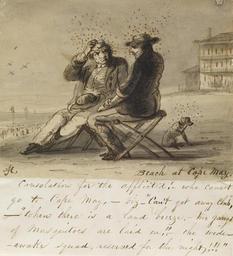 Beach at Cape May.
Consolation for the afflicted!! who can't
go to Cape May. — viz — Can't get away Club,
— "when there is a land breeze, the gangs
of Mosquitoes are laid on!! the wide-
awake squad, reserved for the night,!!!"